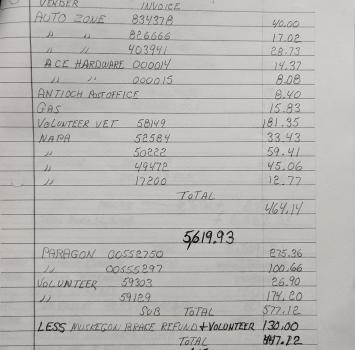 VENDER INVOICE
AUTO ZONE 834378 40.00
" " 826666 17.02
" " 403941 28.73
ACE HARDWARE 000014 14.37
" " 000015 8.08
ANTIOCH POST OFFICE 8.40
GAS 15.83
VOLUNTEER VET 58149 181.35
NAPA 52584 33.43
" 50222 59.41
" 49472 45.06
" 17200 12.77
TOTAL
464.14
5,619.93
PARAGON 00552750 275.36
" 00555297 100.66
VOLUNTEER 59303 26.90
" 59129 174.20
SUB TOTAL 577.12
LESS MUSKEGON BRAKE REFUND + VOLUNTEER 130.00
TOTAL 447.12